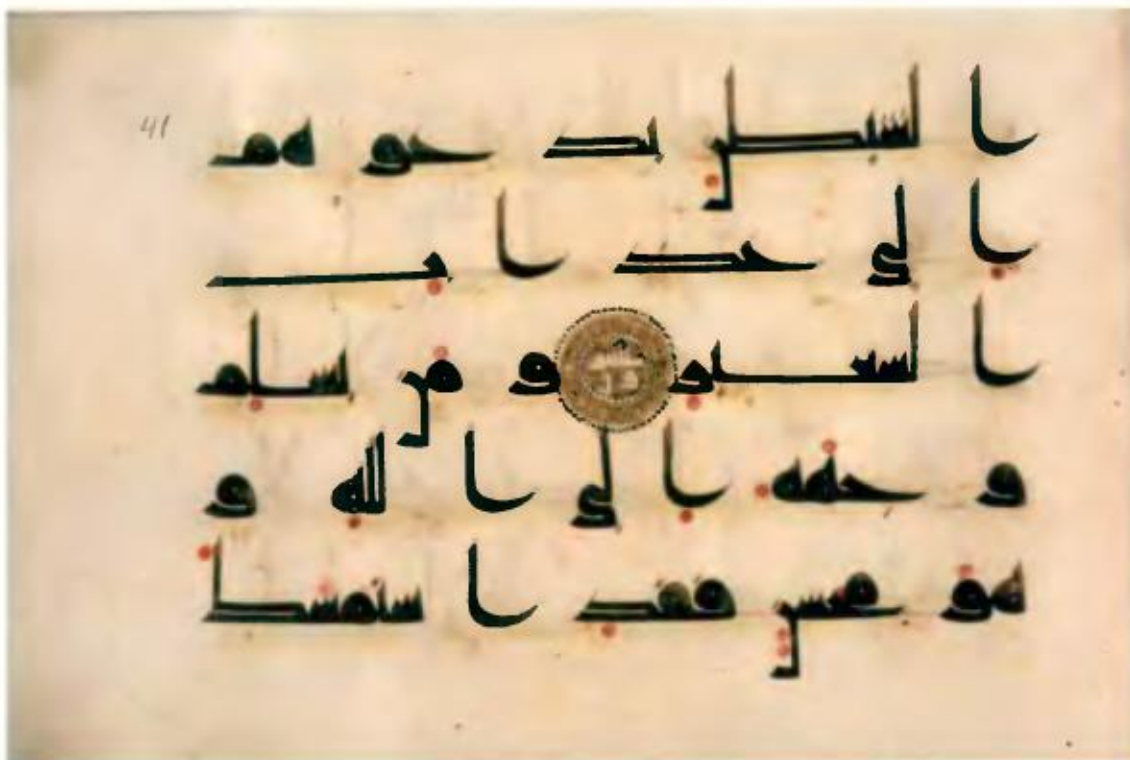 الشيطن يدعوهم 41
الى عذاب
السعير ومن يسلم
وجهه الى الله و
هو محسن فقد استمسك